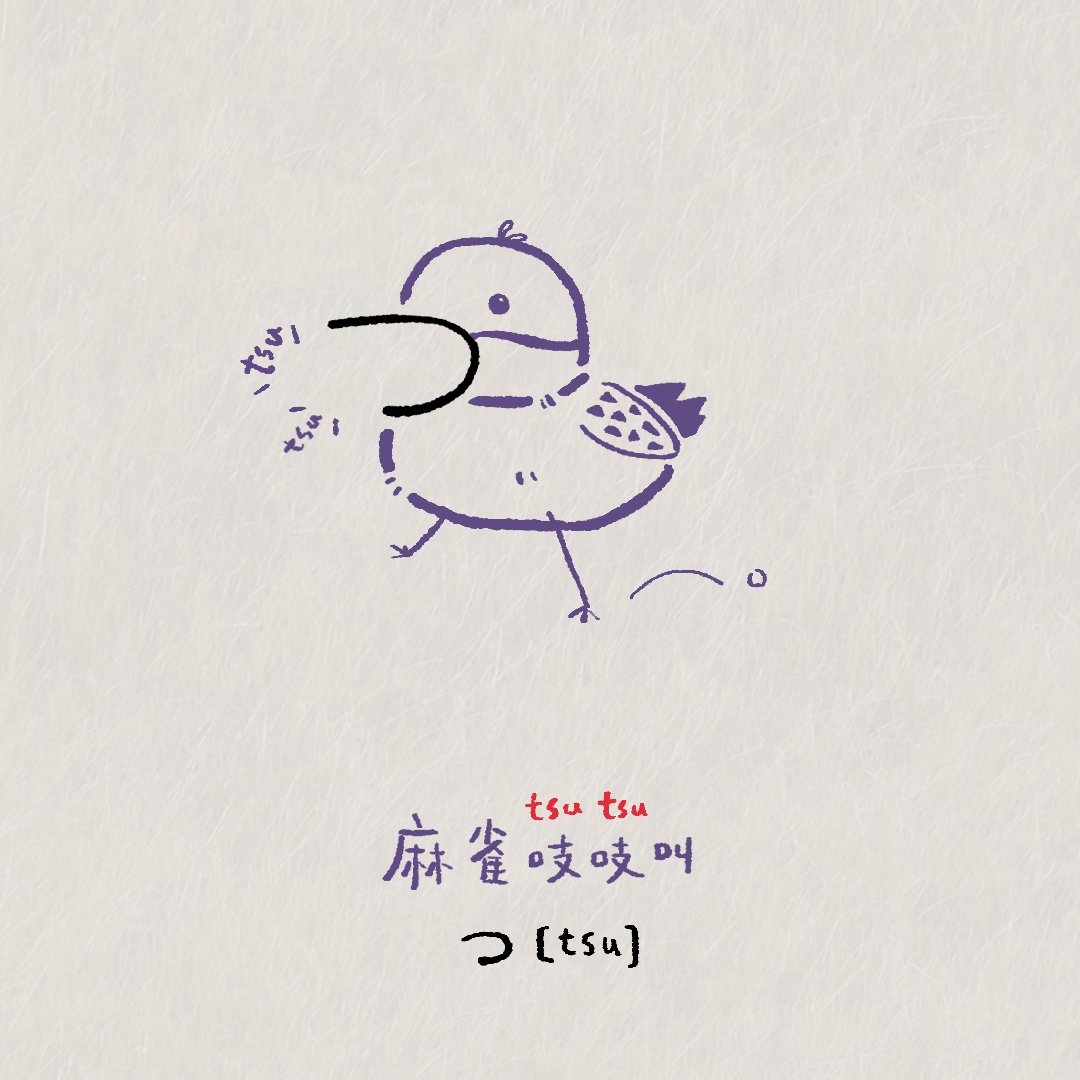 tsu
tsu
tsu tsu
麻雀吱吱叫
つ [tsu]